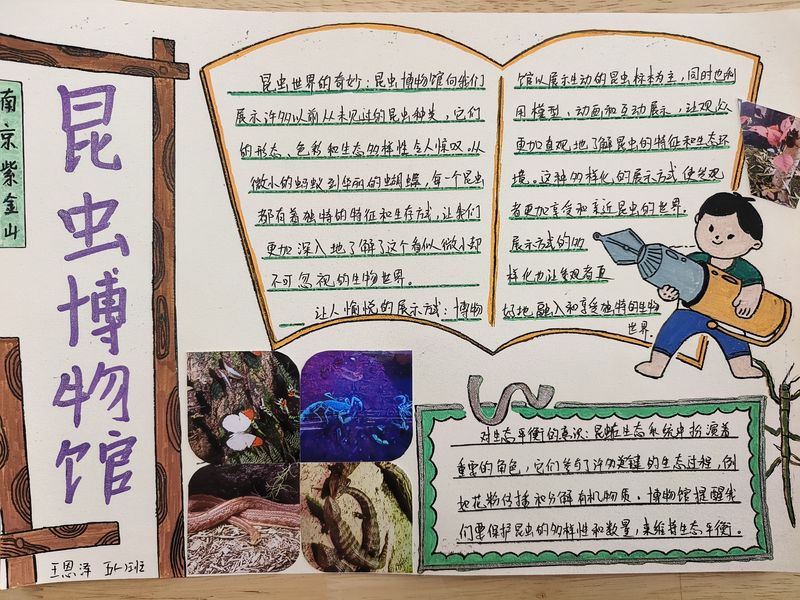 南京紫金山
昆虫博物馆
王恩泽 五(2)班
昆虫世界的奇妙：昆虫博物馆向我们
展示许多以前从未见过的昆虫种类，它们
的形态、色彩和生态多样性令人惊叹。从
微小的蚂蚁到华丽的蝴蝶，每一个昆虫
都有着独特的特征和生存方式，让我们
更加深入地了解了这个看似微小却
不可忽视的生物世界。
让人愉悦的展示方式：博物
馆以展示生动的昆虫标本为主，同时也利
用模型、动画和互动展示，让观众
更加直观地了解昆虫的特征和生态环
境。这种多样化的展示方式使参观
者更加享受和亲近昆虫的世界。
展示方式的多
样化也让参观者更
好地融入和享受独特的生物
世界。
对生态平衡的意识：昆虫在生态系统中扮演着
重要的角色，它们参与了许多关键的生态过程，例
如花粉传播和分解有机物质。博物馆提醒我
们要保护昆虫的多样性和数量，来维持生态平衡。